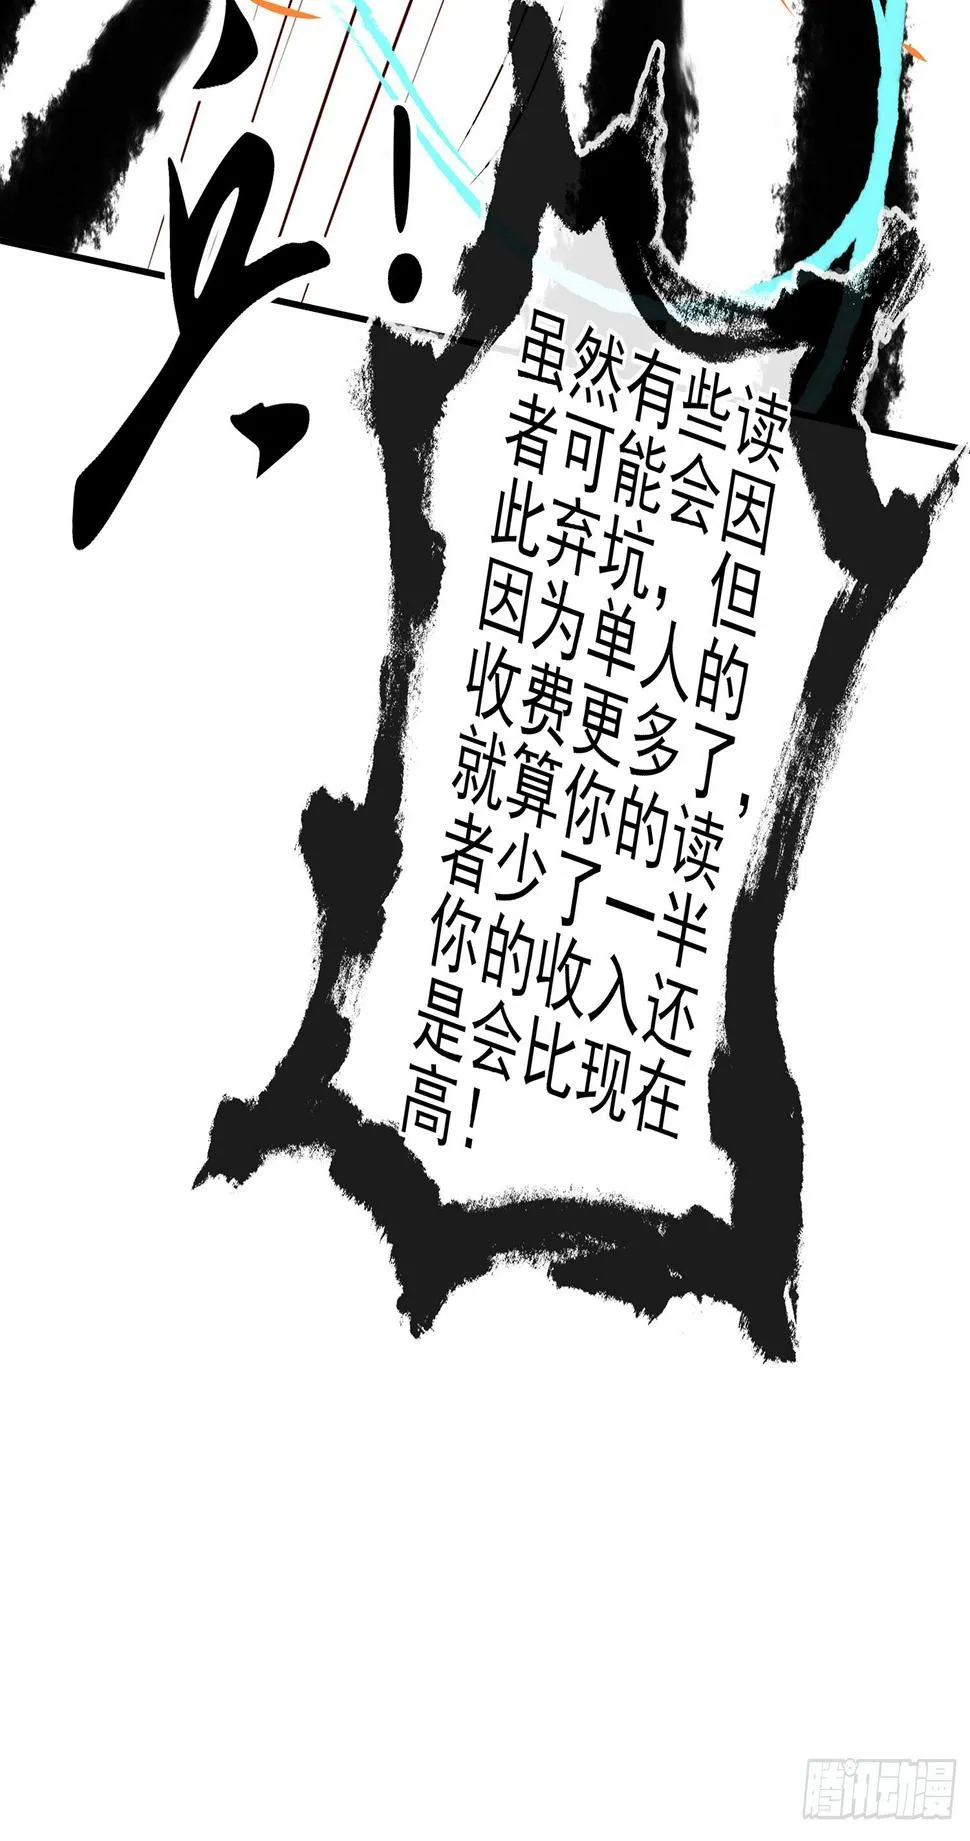 虽然有些读
者可能会因
此弃坑，但
因为单人的
收费更多了，
就算你的读
者少了一半
你的收入还
是会比现在
高！
腾讯动漫